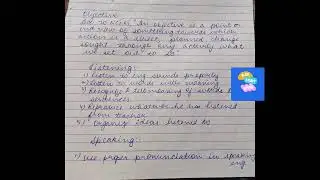 Objective
"An objective is a point or
end view of something towards which
action is directed, planned change
sought through any activity what
we set out to do"
Listening:-
1) Listen to eng sounds properly
2) Listen to words with meaning
3) Recognize & tell meaning of words &
sentences
4) Reproduce whatever he has listened
from teacher
5) Organize Ideas listened to
Speaking:-
1) use proper pronunciation in speaking
eng